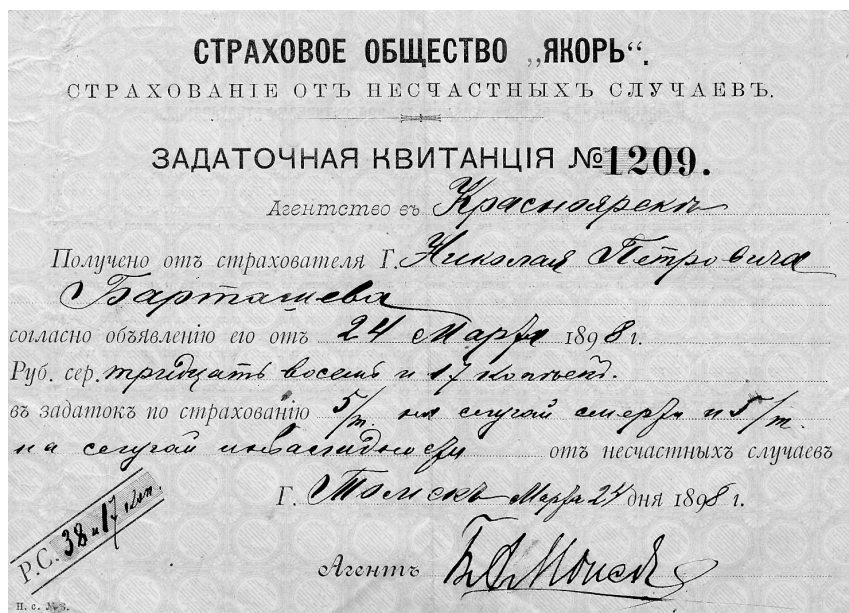 СТРАХОВОЕ ОБЩЕСТВО „ЯКОРЬ“.
СТРАХОВАНІЕ ОТЪ НЕСЧАСТНЫХЪ СЛУЧАЕВЪ.
ЗАДАТОЧНАЯ КВИТАНЦІЯ №1209.
Агентство въ Красноярскѣ
Получено отъ страхователя Г. Николая Петровича
Барташева
согласно объявленію его отъ 24 Марта 1898 г.
Руб. сер. тридцать восемь и 17 копѣекъ.
въ задатокъ по страхованію 5/т. на случай смерти и 5/т.
на случай инвалидности отъ несчастныхъ случаевъ
Г. Томскъ Марта 24 дня 1898 г.
Р.С. 38 и 17 коп.
Агентъ
П. с. №3.